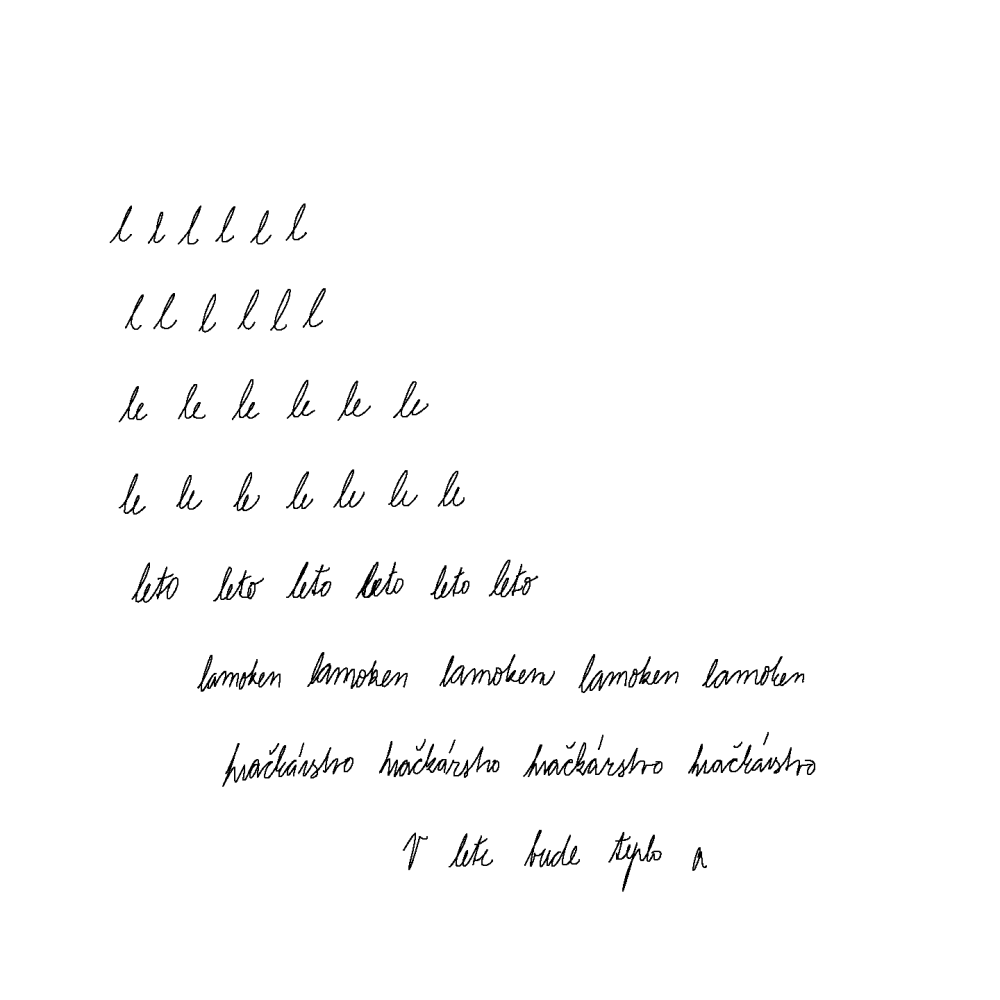 l l l l l l
l l l l l l
le le le le le le
le le le le le le le
leto leto leto leto leto leto
lamoken lamoken lamoken lamoken lamoken
hračkárstvo hračkárstvo hračkárstvo hračkárstvo
V lete bude teplo a